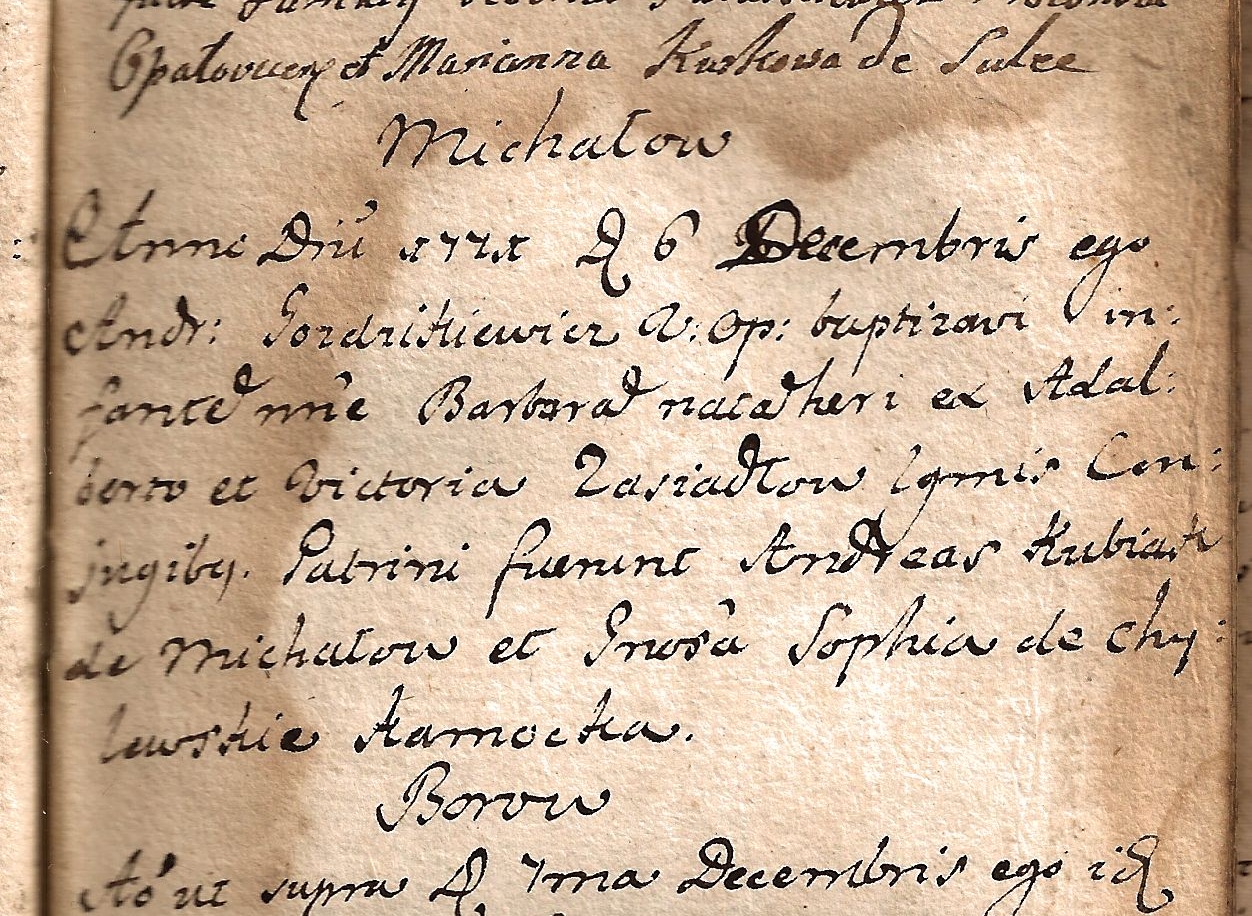 Opatovien et Marianna Kurkowa de Sulee
Michałow
Anno Dnı̄ 1771 D 6 Decembris ego
Andr: V: Op: baptizavi in:
fante nn̄e Barbara nata heri ex Adal:
berto et Victoria Zasiadłow lgmis Con:
jugibq. Patrini fuerunt Andreas Kubiak
de Michałow et Gnosa Sophia de Chy:
lewskie Kamocka.
Borow
Aō ut supra D 7ma Decembris ego id